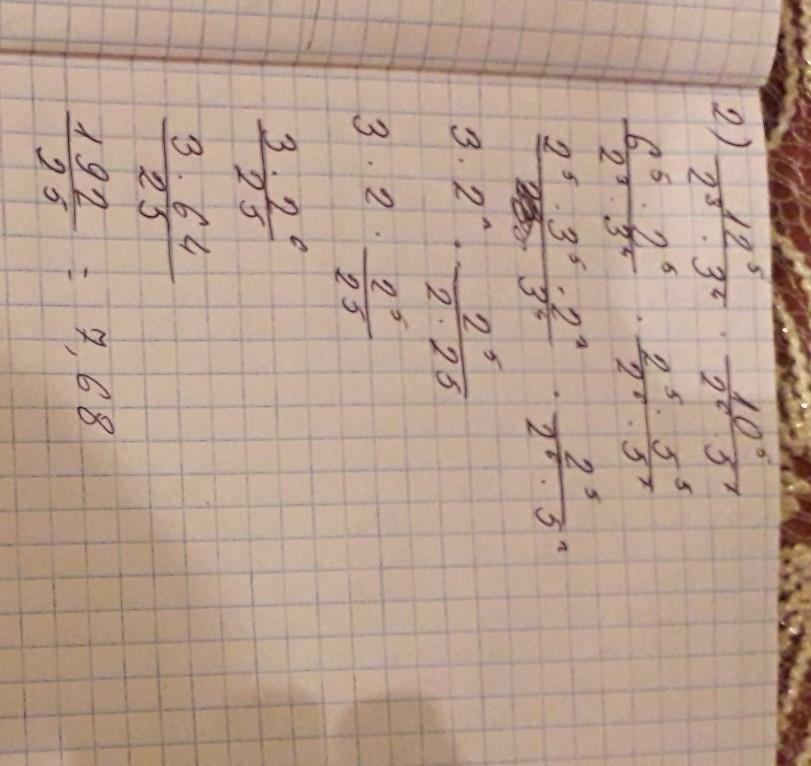 2) 12⁵/(2³ · 3⁴) · 10⁵/(2⁶ · 5⁷)
(6⁵ · 2⁵)/(2³ · 3⁴) · (2⁵ · 5⁵)/(2⁶ · 5⁷)
(2⁵ · 3⁵ · 2²)/3⁴ · 2⁵/(2⁶ · 5²)
3 · 2² · 2⁵/(2 · 25)
3 · 2 · 2⁵/25
(3 · 2⁶)/25
(3 · 64)/25
192/25 = 7,68